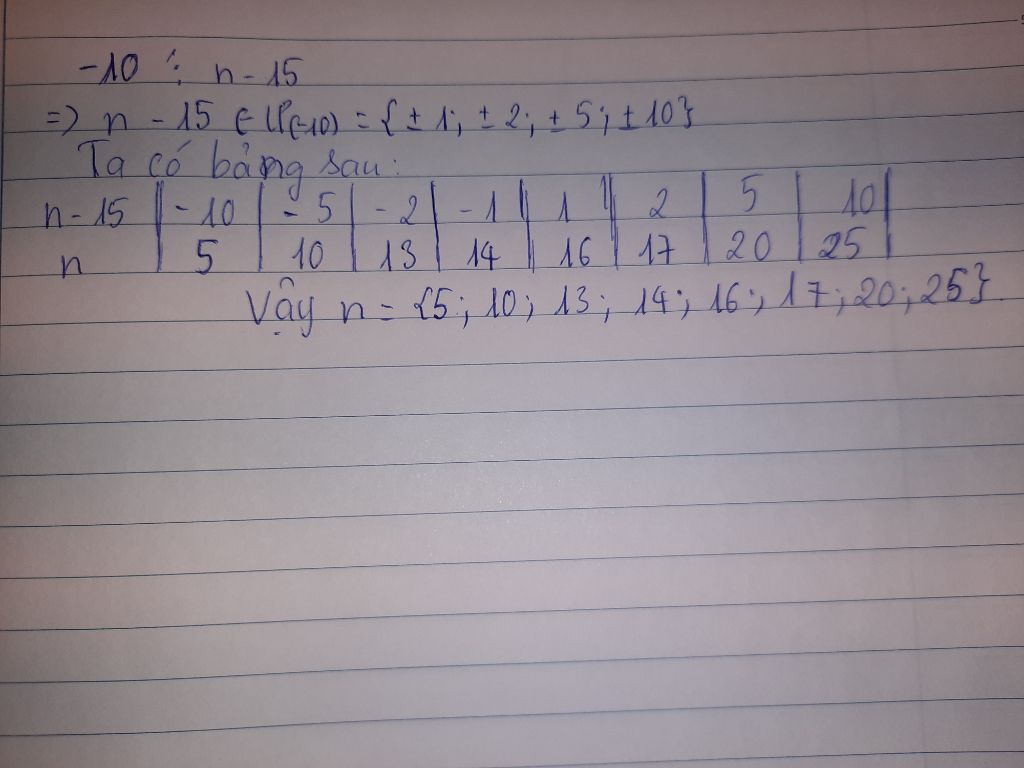 -10 ⋮ n - 15
=> n - 15 ∈ Ư(-10) = {±1; ±2; ±5; ±10}
Ta có bảng sau:
n - 15 | -10 | -5 | -2 | -1 | 1 | 2 | 5 | 10 |
n | 5 | 10 | 13 | 14 | 16 | 17 | 20 | 25 |
Vậy n = {5; 10; 13; 14; 16; 17; 20; 25}